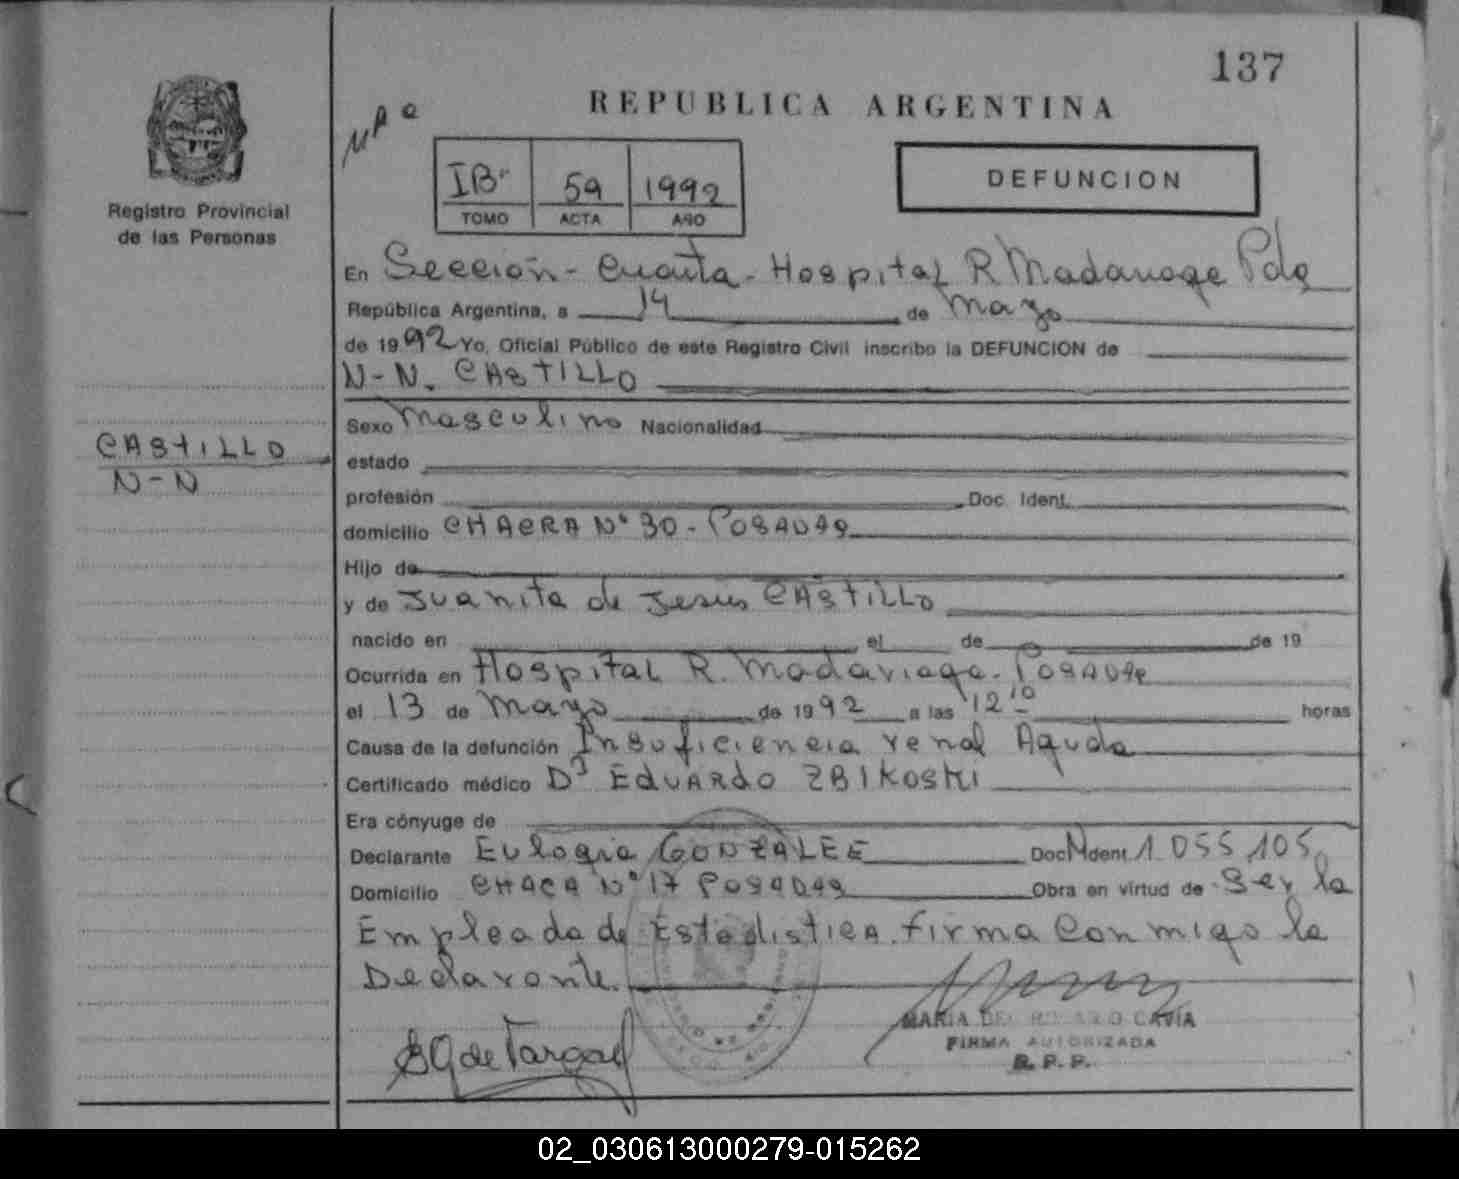 137
REPUBLICA ARGENTINA
Registro Provincial
de las Personas
IBr 59 1992
TOMO ACTA AÑO
DEFUNCION
En Sección - Cuarta - Hospital R Madariaga Pdas
República Argentina, a 14 de Mayo
de 1992 Yo, Oficial Público de este Registro Civil inscribo la DEFUNCION de
N-N. CASTILLO
Sexo Masculino Nacionalidad
CASTILLO
N-N
estado
profesión Doc. Ident.
domicilio CHACRA N° 30 - POSADAS
Hijo de
y de Juanita de Jesús CASTILLO
nacido en el de de 19
Ocurrida en Hospital R. Madariaga - POSADAS
el 13 de Mayo de 1992 a las 12 10 horas
Causa de la defunción Insuficiencia renal Aguda
Certificado médico Dr EDUARDO ZBIKOSKI
Era cónyuge de
Declarante Eulogia GONZALEE Doc. Ident 1.055.105
Domicilio CHACA N° 17 POSADAS Obra en virtud de Ser la
Empleada de Estadistica. firma Conmigo la
Declarante.
MARIA DEL ROSARIO CAVIA
FIRMA AUTORIZADA
R. P. P.
02_030613000279-015262